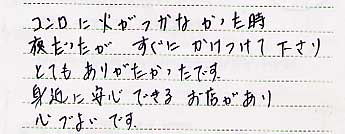 コンロに火がつかなかった時
夜だったが すぐに かけつけて下さり
とても ありがたかったです
身近に安心できる お店があり
心づよいです。